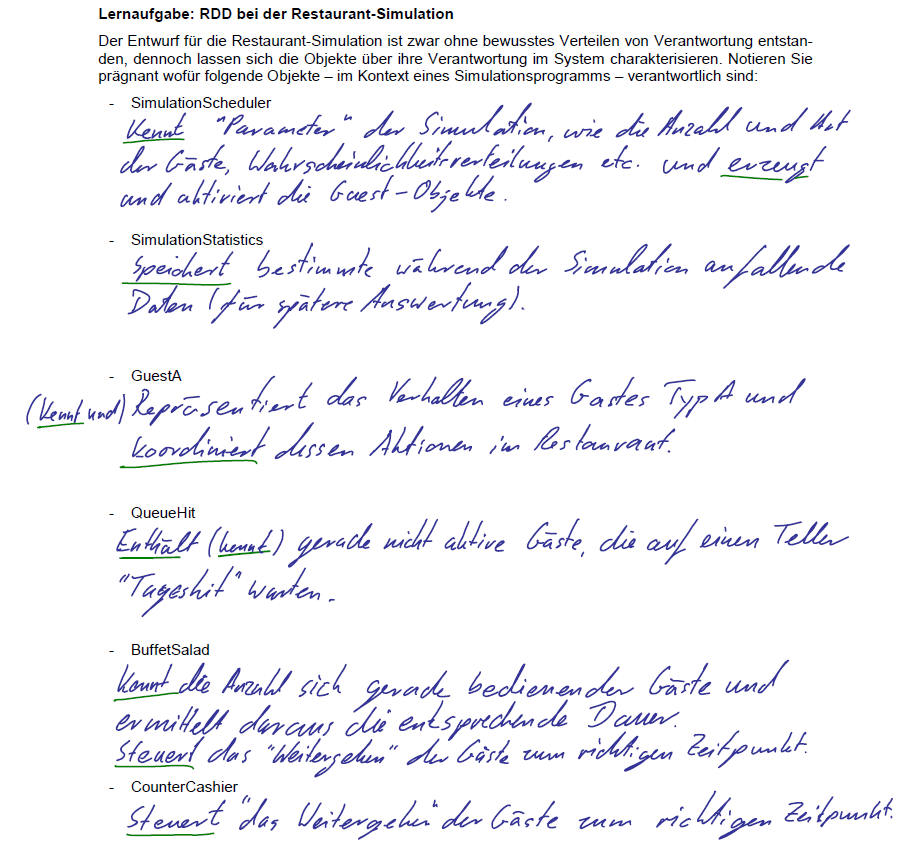 Lernaufgabe: RDD bei der Restaurant-Simulation
Der Entwurf für die Restaurant-Simulation ist zwar ohne bewusstes Verteilen von Verantwortung entstan-
den, dennoch lassen sich die Objekte über ihre Verantwortung im System charakterisieren. Notieren Sie
prägnant wofür folgende Objekte – im Kontext eines Simulationsprogramms – verantwortlich sind:
- SimulationScheduler
Kennt "Parameter" der Simulation, wie die Anzahl und Art
der Gäste, Wahrscheinlichkeitsverteilungen etc. und erzeugt
und aktiviert die Guest-Objekte.
- SimulationStatistics
Speichert bestimmte während der Simulation anfallende
Daten (für spätere Auswertung).
- GuestA
(Kennt und) Repräsentiert das Verhalten eines Gastes Typ A und
koordiniert dessen Aktionen im Restaurant.
- QueueHit
Enthält (kennt) gerade nicht aktive Gäste, die auf einen Teller
"Tageshit" warten.
- BuffetSalad
Kennt die Anzahl sich gerade bedienender Gäste und
ermittelt daraus die entsprechende Dauer.
Steuert das "Weitergehen" der Gäste zum richtigen Zeitpunkt.
- CounterCashier
Steuert "das Weitergehen" der Gäste zum richtigen Zeitpunkt.